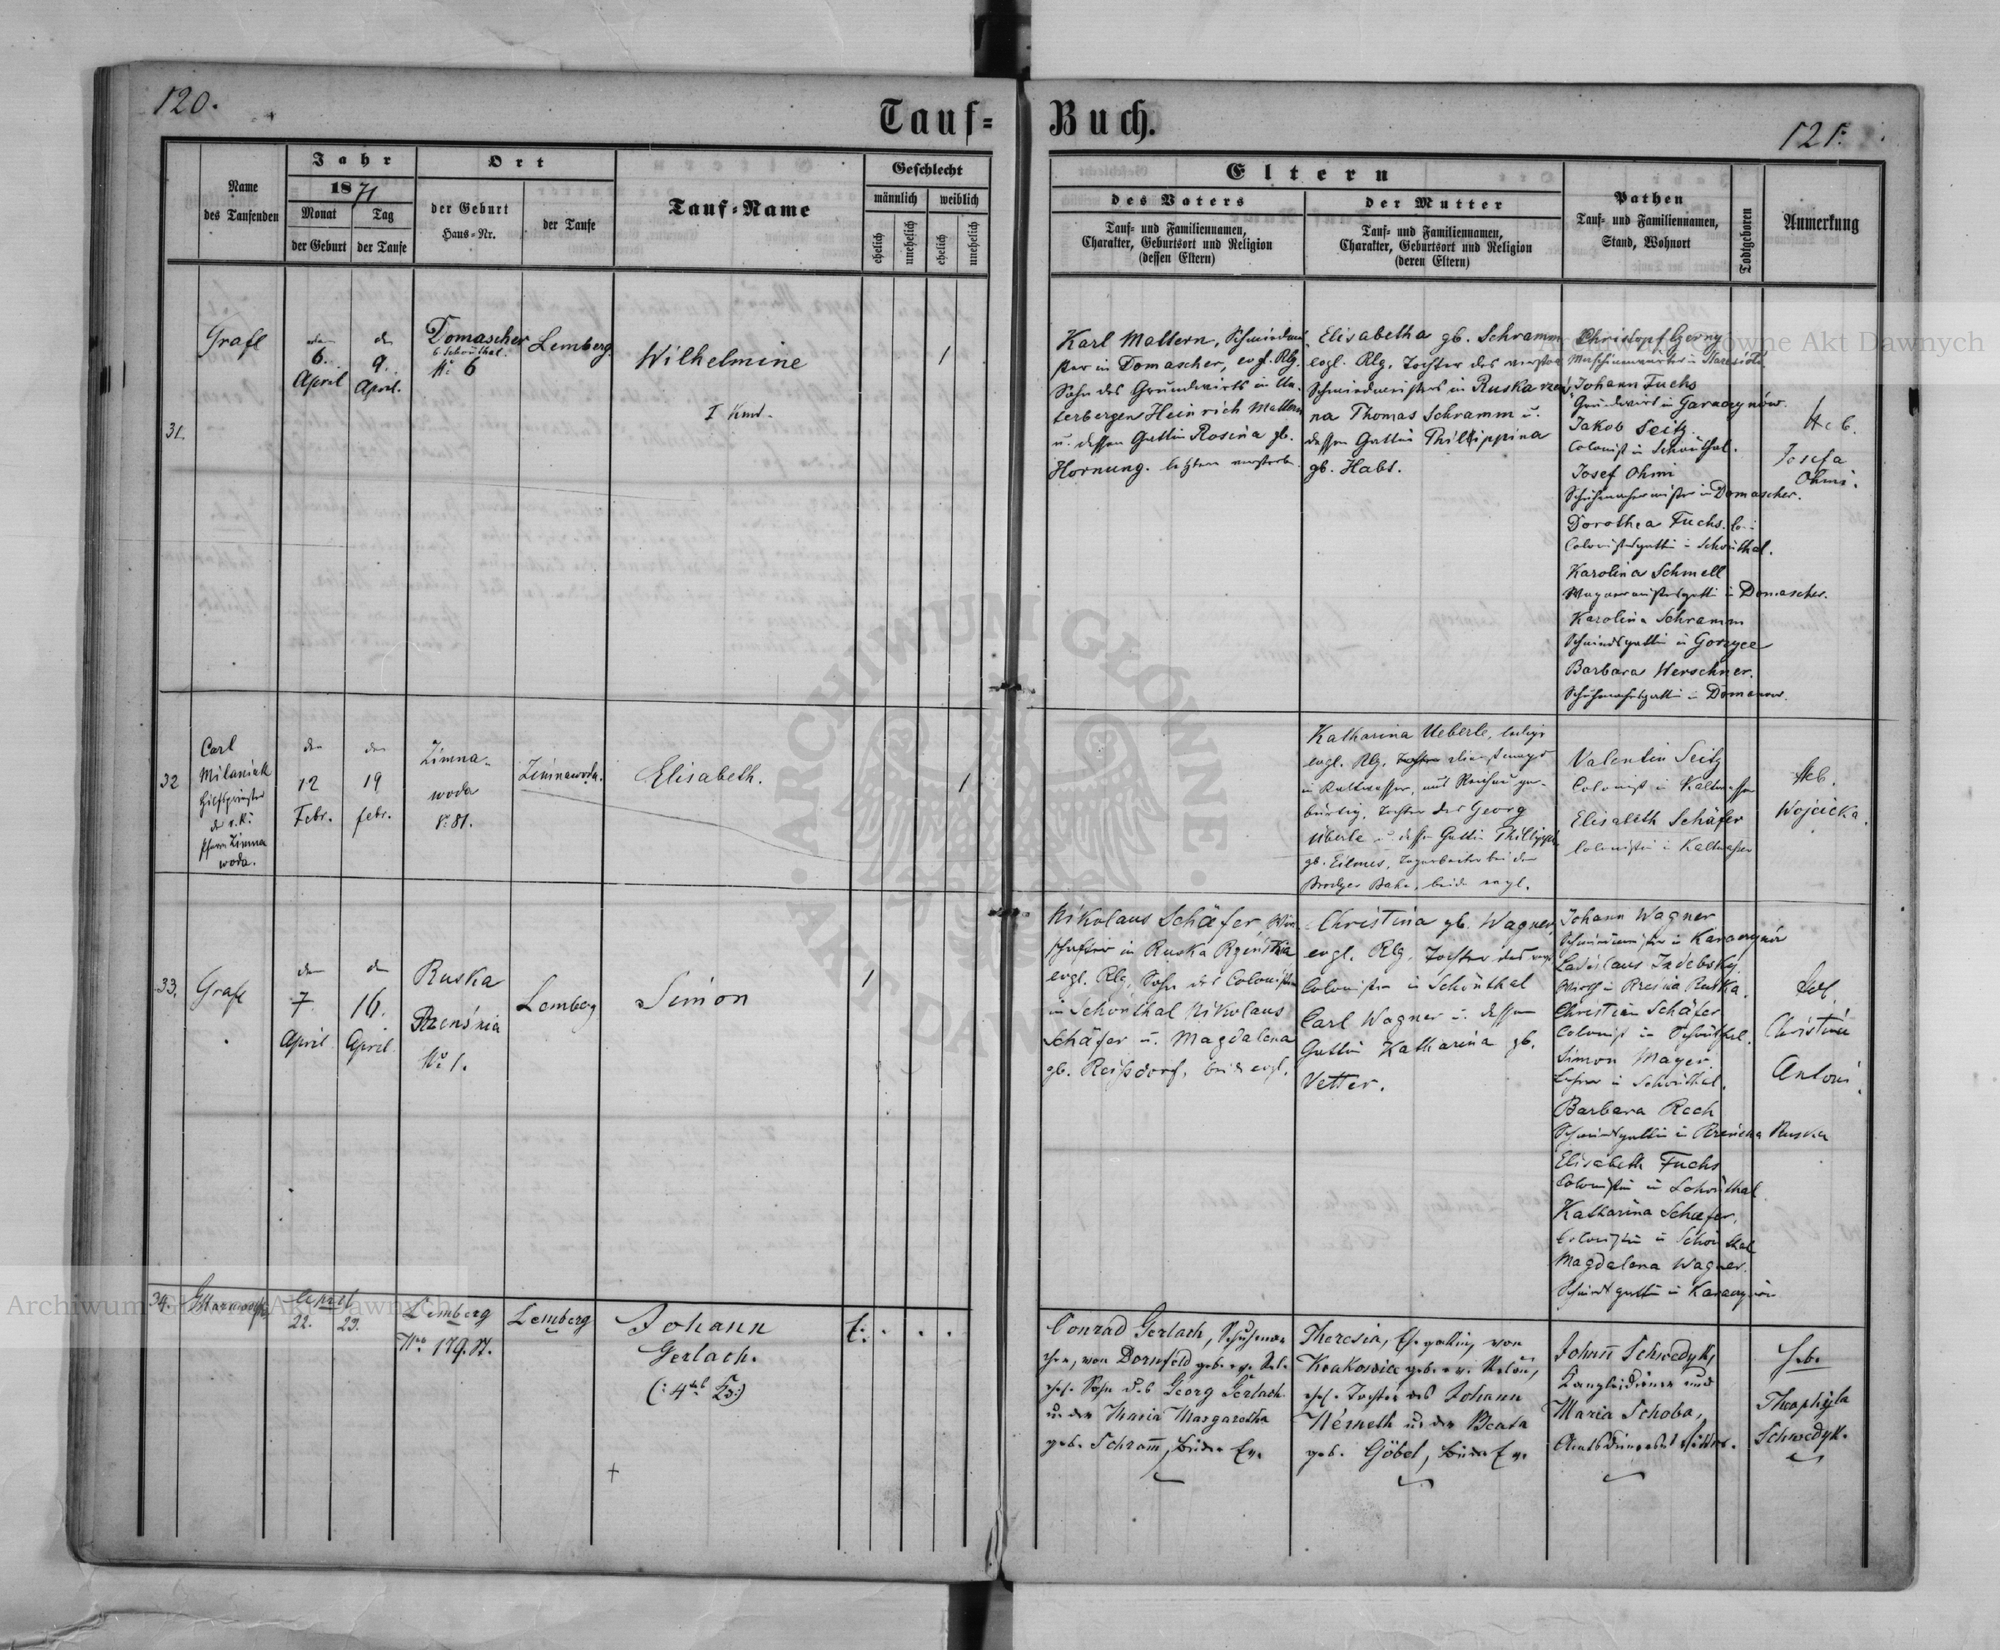 120.
Tauf=
Buch.
121.
Name
des Taufenden
Jahr
1871
Monat
Tag
der Geburt
der Taufe
Ort
der Geburt
Haus=Nr.
der Taufe
Tauf=Name
Geschlecht
männlich
weiblich
ehelich
unehelich
ehelich
unehelich
Eltern
des Vaters
Tauf= und Familiennamen,
Charakter, Geburtsort und Religion
(dessen Eltern)
der Mutter
Tauf= und Familiennamen,
Charakter, Geburtsort und Religion
(deren Eltern)
Pathen
Tauf= und Familiennamen,
Stand, Wohnort
Todtgeboren
Anmerkung
31.
Grafl
6.
April
9.
April.
Domascher
b Schönthal.
No 6
Lemberg
Wilhelmine
I Kind.
1
Karl Mattern, Schmiedmei
ster in Domascher, evgl. Rlg.
Sohn des Grundwirts in Un-
terbergen Heinrich Mattern
u. dessen Gattin Rosina gb.
Hornung.
Elisabetha gb. Schramm
evgl. Rlg. Tochter des
Schmiedmeisters in Ruska
na Thomas Schramm u.
dessen Gattin Phillippina
gb. Habs.
Christopf Gerny
Johann Fuchs
Grundwirt in
Jakob Seitz.
Colonist in Schönthal.
Josef Ohmi
Schuhmachermister in Domascher.
Dorothea Fuchs.
Colonistsgattin in Schönthal.
Karolina Schmell
Wagnermistersgattin in Domascher.
Karolina Schramm
Schmiedsgattin in
Barbara Herschner.
Schuhmachersgattin in
Heb.
Josefa
Ohmi.
32
Carl
Milaniak
Hilfspriester
der r. k.
Pfarre Zimna
woda.
den
12
Febr.
den
19
febr.
Zimna-
woda
No 81.
Zimnawoda.
Elisabeth.
1
Katharina Ueberle, ledige
evgl. Rlg. Dienstmagd
in Kaltwasser, aus Reichau ge-
bürtig, Tochter des Georg
Überle u. dessen Gattin
gb. Tagarbeiter bei der
Brodyer Bahn, beide evgl.
Valentin Seitz
Colonist in Kaltwasser
Elisabeth Schäfer
Colonistin in Kaltwasser
Heb.
Wojcicka.
33.
Grafl
den
7
April
den
16.
April.
Ruska
No 1.
Lemberg
Simon
1
Nikolaus Schäfer,
in Ruska
evgl. Rlg, Sohn des Colonisten
in Schönthal Nikolaus
Schäfer u. Magdalena
gb. Reißdorf, beide evgl.
Christina gb. Wagner,
evgl. Rlg, Tochter des
Colonisten in Schönthal
Carl Wagner u. dessen
Gattin Katharina gb.
Vetter.
Johann Wagner
Schmiedmeister in
Ladislaus Jadebsky.
Christian Schäfer
Colonist in Schönthal.
Simon Mayer
Lehrer in Schönthal.
Barbara Rech
Schmiedsgattin in Ruska
Elisabeth Fuchs
Colonistin in Schönthal.
Katharina Schæfer.
Colonistin in Schönthal
Magdalena Wagner.
Schmiedsgattin in
Heb.
Christine
Antoni.
34.
April
22.
23.
Lemberg
Lemberg
Johann
Gerlach.
Conrad Gerlach, Schuhma-
cher, von Dornfeld gebürtig
Sohn des Georg Gerlach
u. der Maria Margaretha
geb. Schram̅, beide Ev.
Theresia, Ehegattin, von
Krakowice
Tochter des Johann
Németh u. der Beata
geb. Göbel, beide Ev.
Johan̅ Schwedyk,
Kanzleidiener und
Maria Schoba,
Heb.
Theophyla
Schwedyk.
Archiwum Główne Akt Dawnych
Archiwum Główne Akt Dawnych
ARCHIWUM GŁÓWNE
AKT DAWNYCH